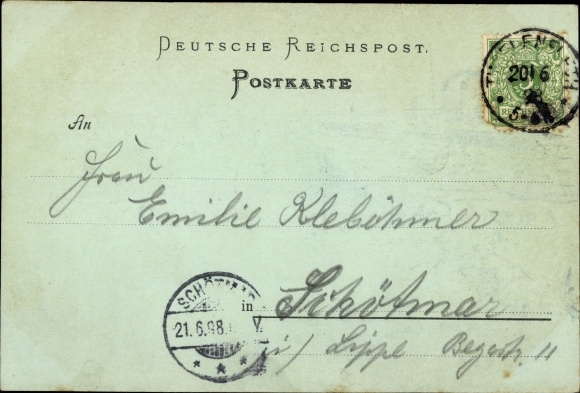 DEUTSCHE REICHSPOST.
POSTKARTE
20/6
An
Frau
Emilie Kleböhmer
SCHÖTMAR
in Schötmar
21.6.98. V.
i/ Lippe Begastr. 11